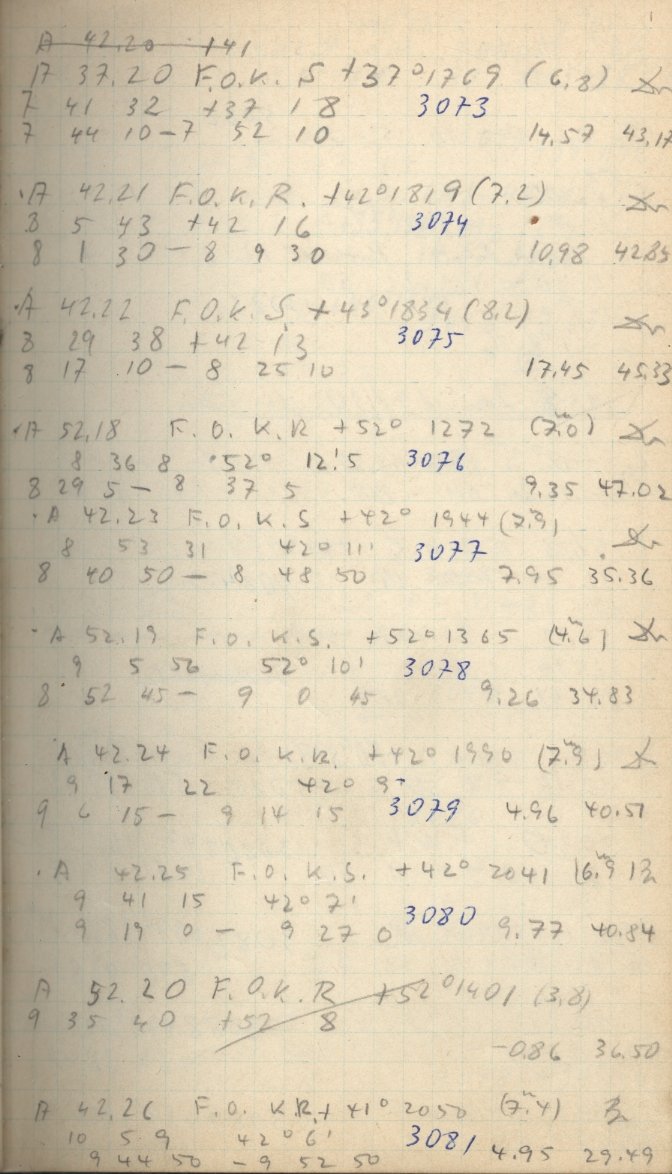 A 42.20 +41
A 37.20 F.O.K. S +37°1769 (6,8)
7 41 32 +37 18 3073
7 44 10 - 7 52 10 14,57 43,17
A 42.21 F.O.K.R. +42°1819 (7.2)
8 5 43 +42 16 3074
8 1 30 - 8 9 30 10,98 42.85
A 42.22 F.O.K.S. +43°1834 (8.2)
8 29 38 +42 13 3075
8 17 10 - 8 25 10 17,45 45,33
A 52,18 F.O.K.R +52° 1272 (7.0)
8 36 8 52° 12!5 3076
8 29 5 - 8 37 5 9,35 47.02
A 42.23 F.O.K.S +42° 1944 (7.9)
8 53 31 42° 11' 3077
8 40 50 - 8 48 50 7.95 35.36
A 52.19 F.O.K.S. +52° 1365 (4.6)
9 5 56 52° 10' 3078
8 52 45 - 9 0 45 9,26 34.83
A 42.24 F.O.K.R. +42° 1990 (7.9)
9 17 22 +42° 9'
9 6 15 - 9 14 15 3079 4.96 40.51
A 42.25 F.O.K.S. +42° 2041 (6.9)
9 41 15 42° 7'
9 19 0 - 9 27 0 3080 9.77 40.84
A 52.20 F.O.K.R +52°1401 (3,8)
9 35 40 +52 8
-0.86 36.50
A 42.26 F.O.K.R. +41° 2050 (7.4)
10 5 9 42° 6' 3081
9 44 50 - 9 52 50 4.95 29.49